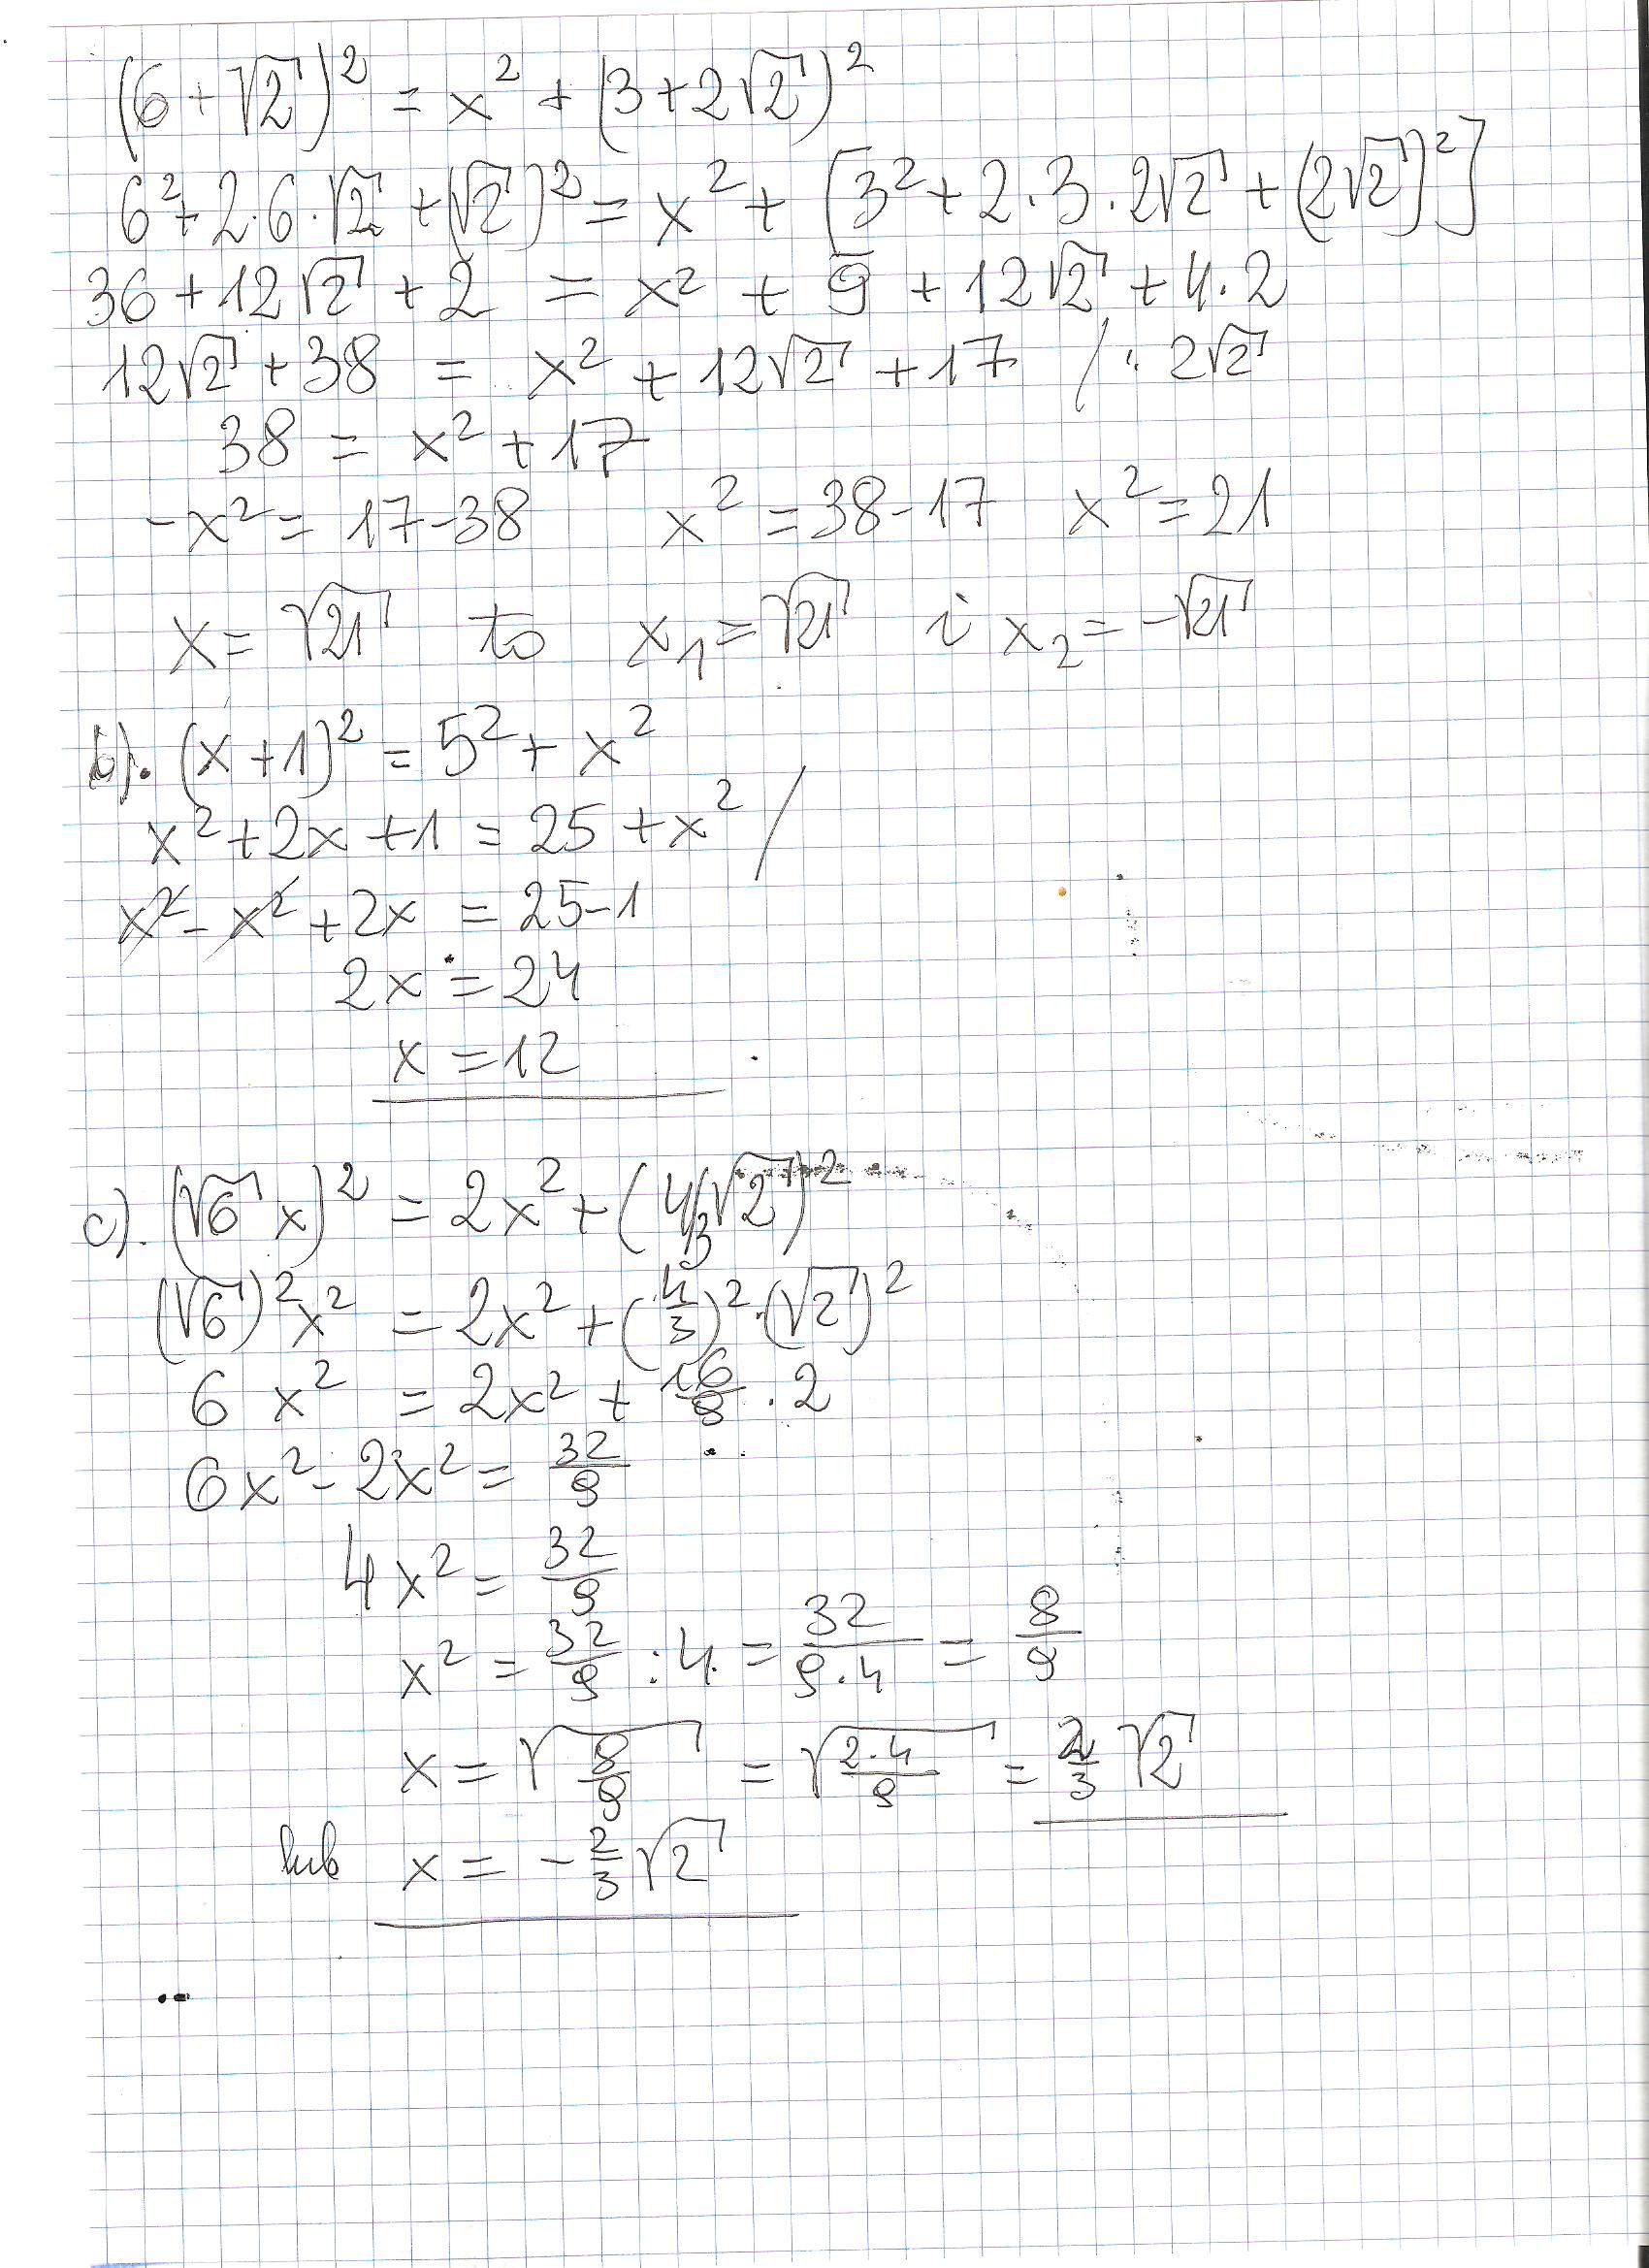 (6+√2)² = x² + (3+2√2)²
6²+2·6·√2+(√2)² = x² + [3²+2·3·2√2+(2√2)²]
36+12√2+2 = x² + 9 + 12√2 + 4·2
12√2+38 = x² + 12√2 + 17 /: 2√2
38 = x² + 17
-x² = 17-38 x² = 38-17 x² = 21
x = √21 to x₁ = √21 i x₂ = -√21
b). (x+1)² = 5² + x²
x²+2x+1 = 25+x² /
x² - x² + 2x = 25-1
2x = 24
x = 12
c). (√6 x)² = 2x² + (4/3√2)²
(√6)² x² = 2x² + (4/3)² · (√2)²
6 x² = 2x² + 16/9 · 2
6x² - 2x² = 32/9
4x² = 32/9
x² = 32/9 : 4 = 32/9·4 = 8/9
x = √8/9 = √2·4/9 = 2/3 √2
lub x = -2/3 √2